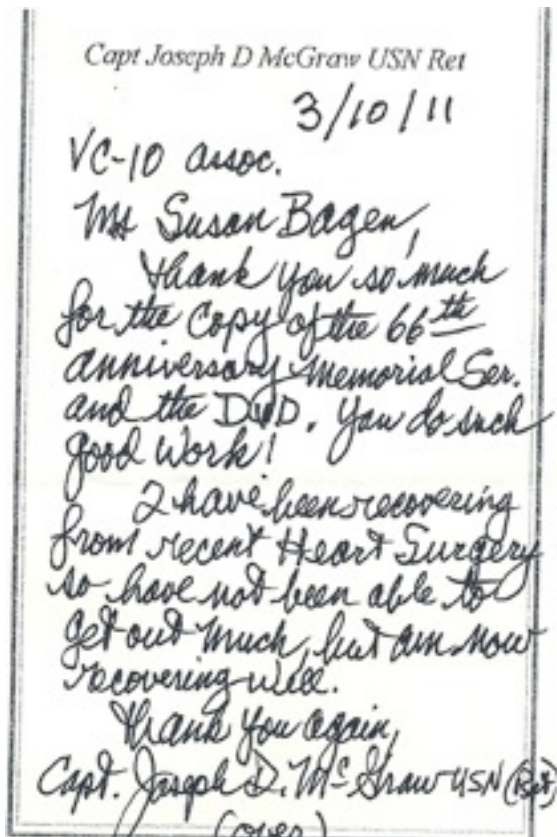 Capt Joseph D McGraw USN Ret
3/10/11
VC-10 assoc.
Ms Susan Bagen,
Thank you so much
for the copy of the 66th
anniversary memorial Ser.
and the DVD. You do such
good work!
I have been recovering
from recent Heart Surgery
so have not been able to
get out much, but am now
recovering well.
Thank you again,
Capt. Joseph D. McGraw USN (Ret)
(over)